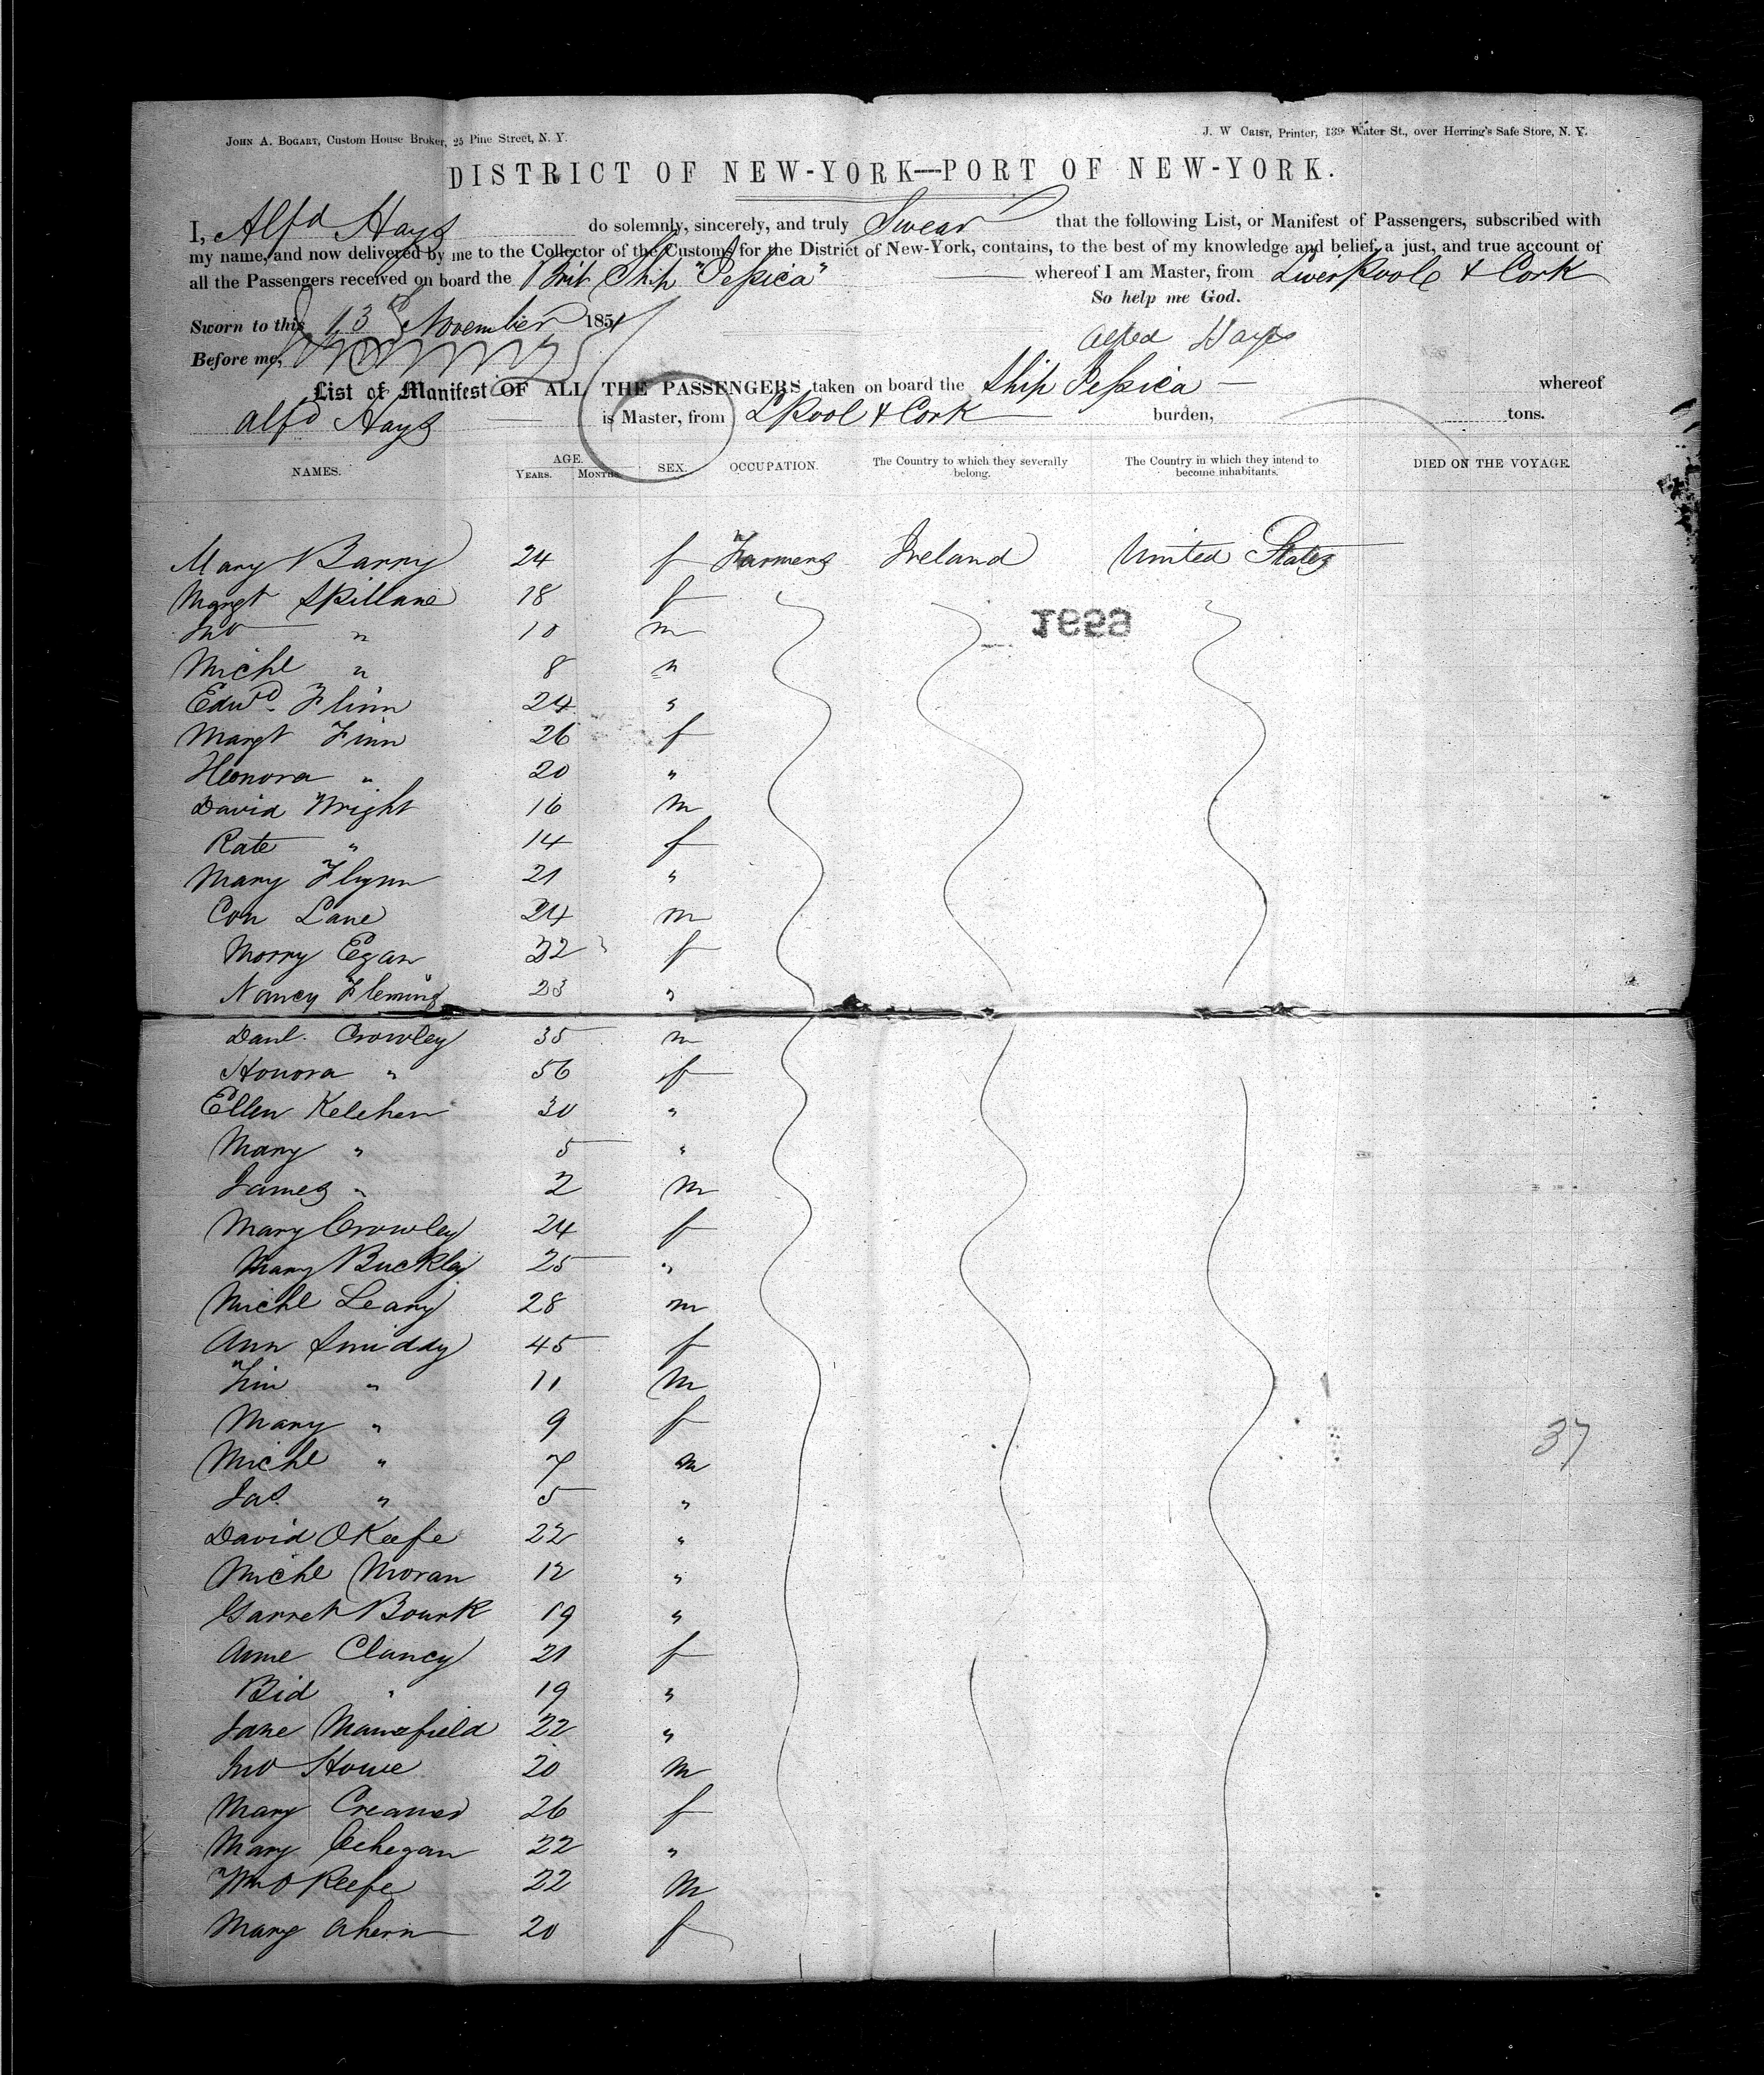 JOHN A. BOGART, Custom House Broker, 25 Pine Street, N. Y.
J. W CRIST, Printer, 139 Water St., over Herring's Safe Store, N. Y.
DISTRICT OF NEW-YORK—PORT OF NEW-YORK.
I, Alfd Hays do solemnly, sincerely, and truly Swear that the following List, or Manifest of Passengers, subscribed with
my name, and now delivered by me to the Collector of the Customs for the District of New-York, contains, to the best of my knowledge and belief, a just, and true account of
all the Passengers received on board the Brit Ship "Jessica" whereof I am Master, from Liverpool & Cork
So help me God.
Sworn to this 13 November 1851
Alfred Hays
Before me,
List of Manifest OF ALL THE PASSENGERS taken on board the Ship Jessica — whereof
Alfd Hays is Master, from LPool & Cork burden, tons.
NAMES. AGE. YEARS. MONTHS. SEX. OCCUPATION. The Country to which they severally belong. The Country in which they intend to become inhabitants. DIED ON THE VOYAGE.
Mary Barry 24 f Farmers Ireland United States
Margt Skillane 18 f
Jno " 10 m
Michl " 8 "
Edwd. Flinn 24 "
Margt Finn 26 f
Honora " 20 "
David Wright 16 m
Kate " 14 f
Mary Flynn 21 "
Con Lane 24 m
Morry Egan 32 f
Nancy Fleming 23 "
Danl. Crowley 35 m
Honora " 56 f
Ellen Kelehen 30 "
Mary " 5 "
James " 2 m
Mary Crowley 24 f
Mary Buckley 25 "
Michl Leary 28 m
Ann Smiddy 45 f
Tim " 11 m
Mary " 9 f
Michl " 7 m
37
Jas. " 5 "
David OKeefe 22 "
Michl Moran 12 "
Garret Bourk 19 "
Anne Clancy 21 f
Bid " 19 "
Jane Mansfield 22 "
Jno Howe 20 m
Mary Creamer 26 f
Mary Gehegan 22 "
Wm OKeefe 22 m
Mary Ahern 20 f